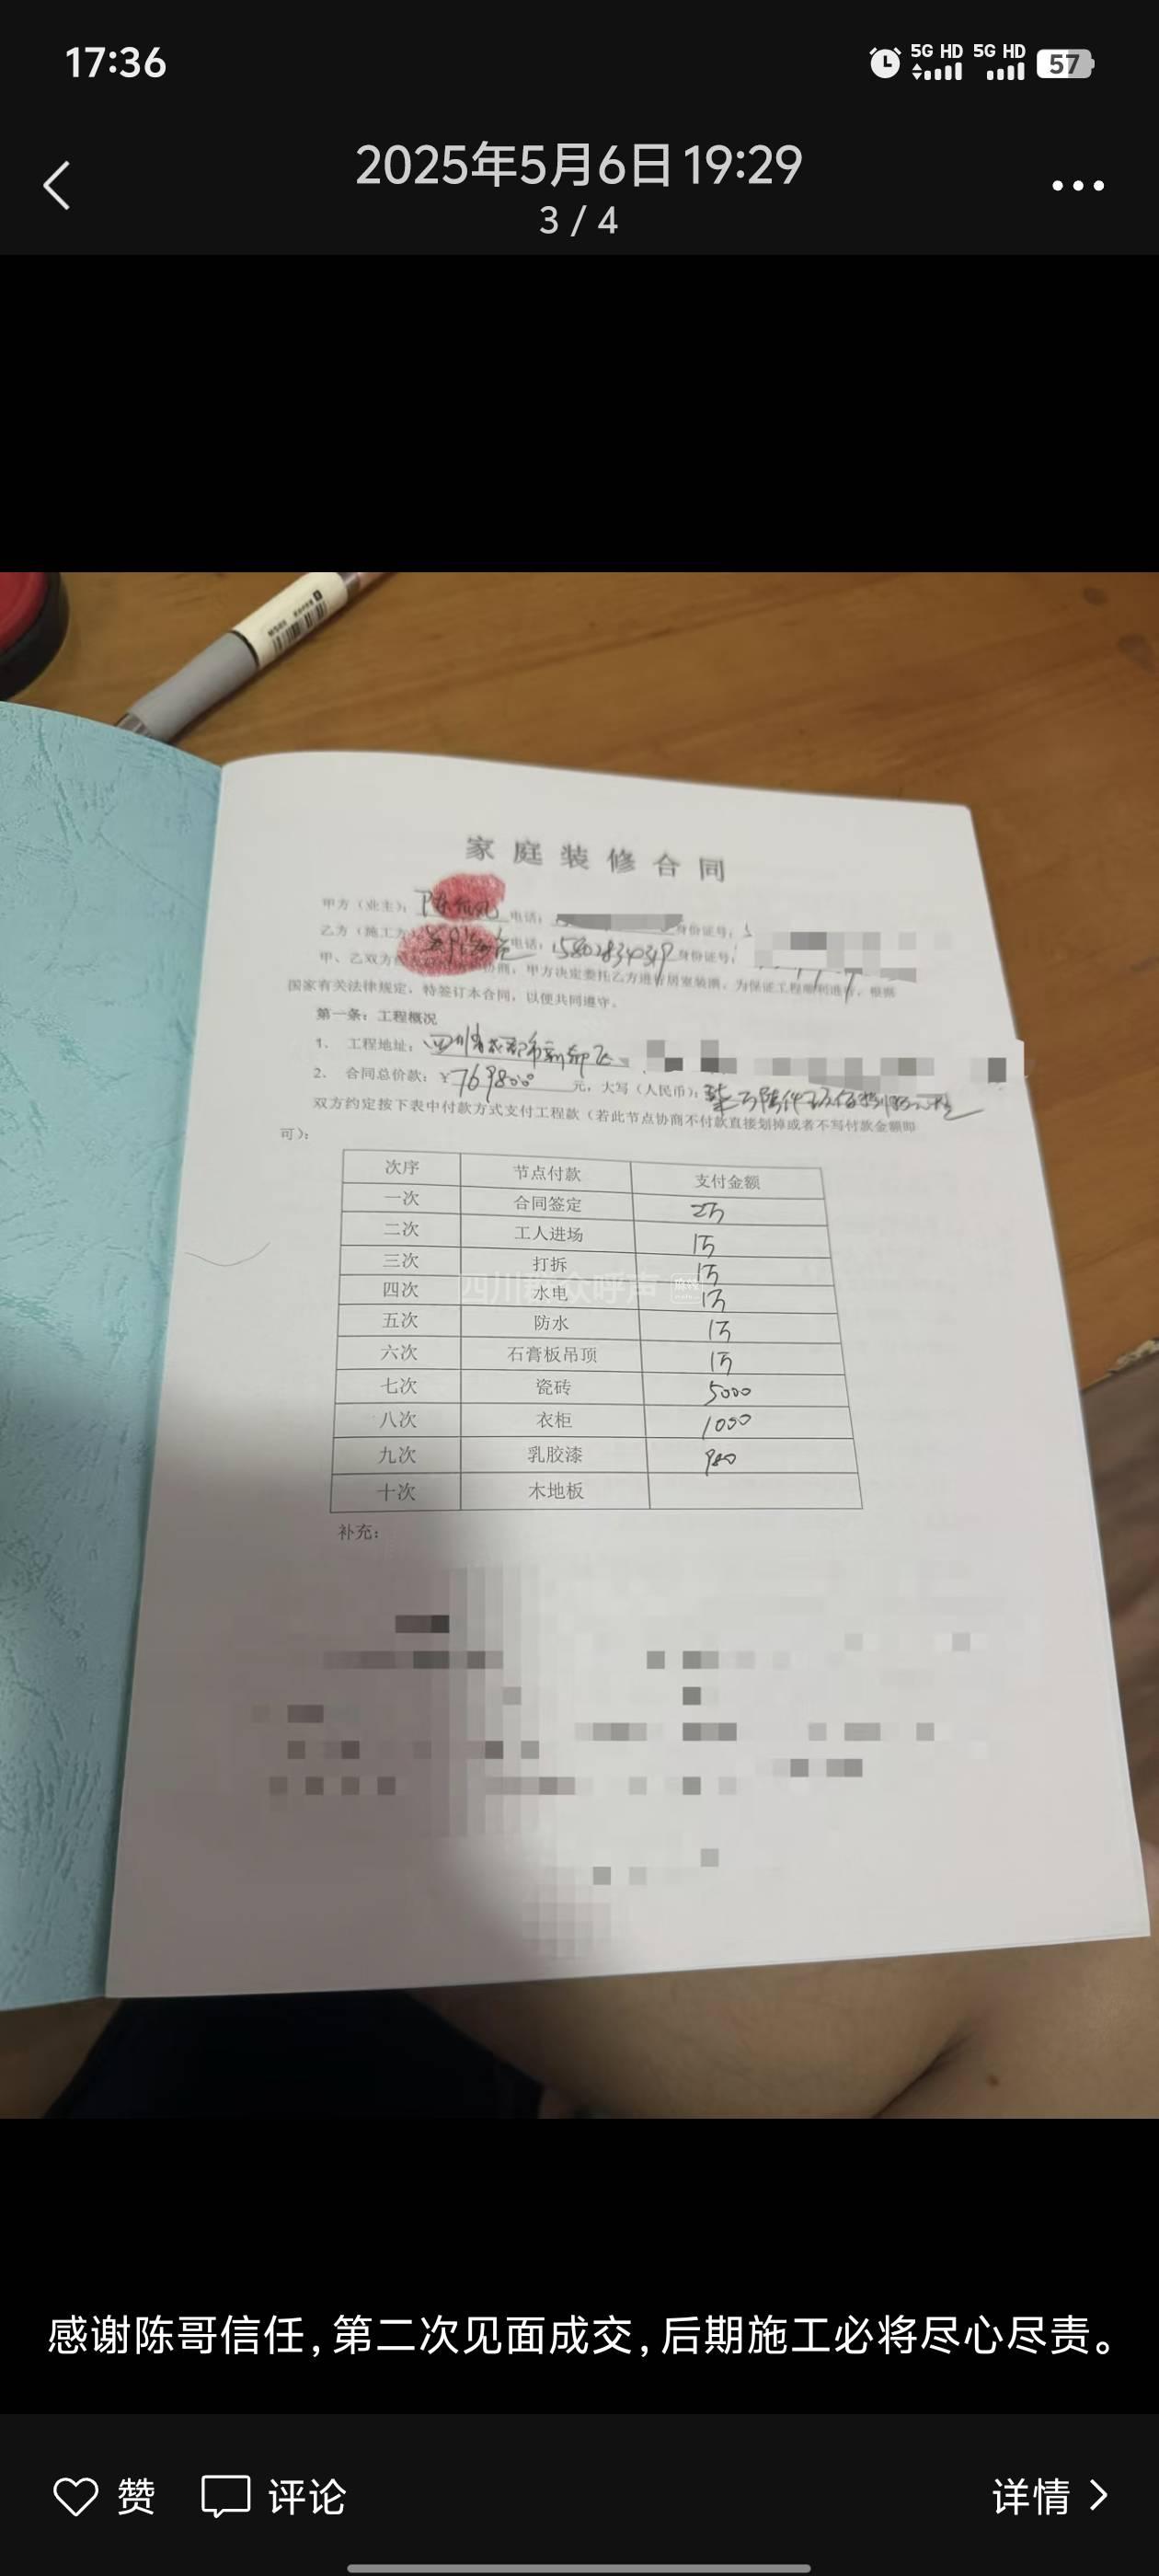 17:36
5G HD 5G HD 57
2025年5月6日 19:29
3 / 4
家庭装修合同
甲方（业主）： 电话： 身份证号：
乙方（施工方 电话：15802834319 身份证号：
甲、乙双方 协商，甲方决定委托乙方进行居室装潢，为保证工程顺利进行，根据
国家有关法律规定，特签订本合同，以便共同遵守。
第一条：工程概况
1、 工程地址：四川省成都市新都区
2、 合同总价款：¥769800 元，大写（人民币）：柒万陆仟玖佰捌拾元整
双方约定按下表中付款方式支付工程款（若此节点协商不付款直接划掉或者不写付款金额即
可）：
次序 节点付款 支付金额
一次 合同签定 2万
二次 工人进场 1万
三次 打拆 1万
四次 水电 1万
五次 防水 1万
六次 石膏板吊顶 1万
七次 瓷砖 5000
八次 衣柜 1000
九次 乳胶漆 980
十次 木地板
四川群众呼声
补充：
感谢陈哥信任，第二次见面成交，后期施工必将尽心尽责。
赞 评论 详情